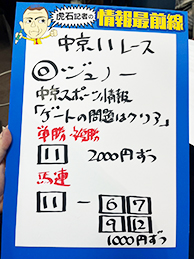 虎石記者の
情報最前線
中京11レース
◎・ジュノー
中京スポーツ情報
「ゲートの問題はクリア」
単勝・複勝
11 2000円ずつ
馬連
11 − 6 7
9 12
1000円ずつ